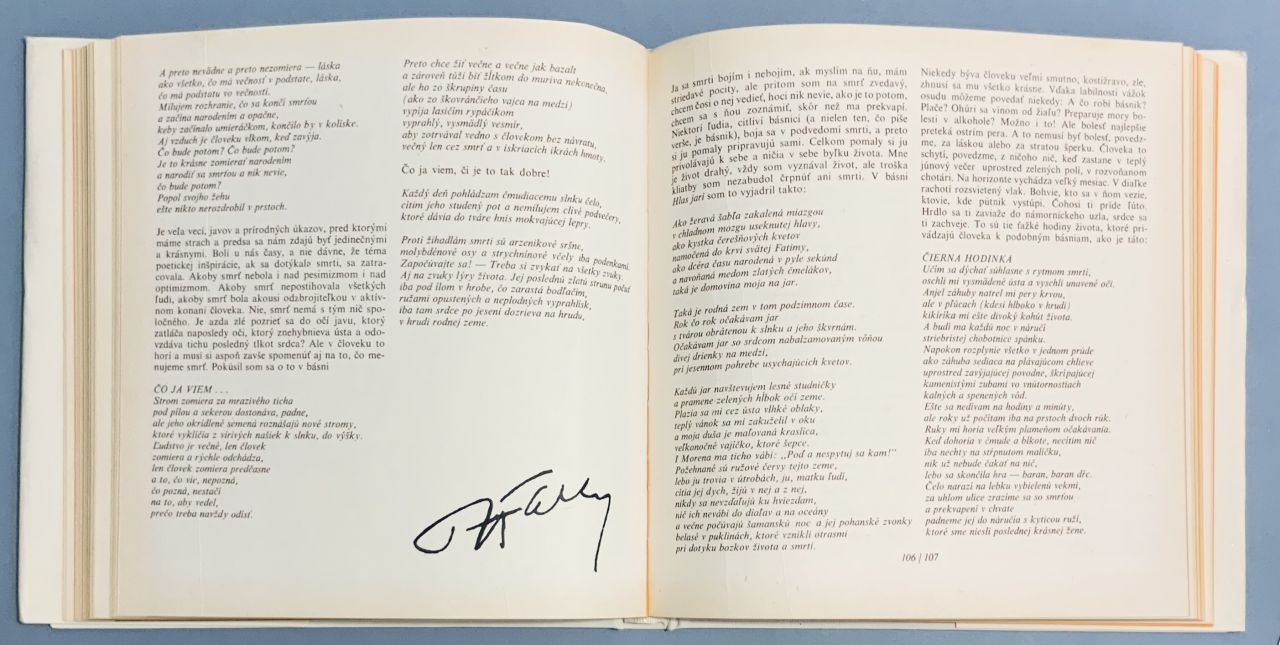 A preto nevädne a preto nezomiera — láska
ako všetko, čo má večnosť v podstate, láska,
čo má podstatu vo večnosti.
Milujem rozhranie, čo sa končí smrťou
a začína narodením a opačne,
keby začínalo umieráčkom, končilo by v kolíske.
Aj vzduch je človeku vlkom, keď zavýja.
Čo bude potom? Čo bude potom?
Je to krásne zomierať narodením
a narodiť sa smrťou a nik nevie,
čo bude potom?
Popol svojho žehu
ešte nikto nerozdrobil v prstoch.
Je veľa vecí, javov a prírodných úkazov, pred ktorými
máme strach a predsa sa nám zdajú byť jedinečnými
a krásnymi. Boli u nás časy, a nie dávne, že téma
poetickej inšpirácie, ak sa dotýkalo smrti, sa zatra-
covala. Akoby smrť nebola i nad pesimizmom i nad
optimizmom. Akoby smrť nepostihovala všetkých
ľudí, akoby smrť bola akousi odzbrojiteľkou v aktív-
nom konaní človeka. Nie, smrť nemá s tým nič spo-
ločného. Je azda zlé pozrieť sa do očí javu, ktorý
zatláča naposledy oči, ktorý znehybnieva ústa a odo-
vzdáva tichu posledný tlkot srdca? Ale v človeku to
horí a musí si aspoň zavše spomenúť aj na to, čo me-
nujeme smrť. Pokúsil som sa o to v básni
ČO JA VIEM . . .
Strom zomiera za mrazivého ticha
pod pílou a sekerou dostonáva, padne,
ale jeho okrídlené semená roznášajú nové stromy,
ktoré vyklíčia z vírivých našiek k slnku, do výšky.
Ľudstvo je večné, len človek
zomiera a rýchle odchádza,
len človek zomiera predčasne
a to, čo vie, nepozná,
čo pozná, nestačí
na to, aby vedel,
prečo treba navždy odísť.
Preto chce žiť večne a večne jak bazalt
a zároveň túži biť žĺtkom do muriva nekonečna,
ale ho zo škrupiny času
(ako zo škovránčieho vajca na medzi)
vypíja lasičím rypáčikom
vyprahlý, vysmädlý vesmír,
aby zotrvával vedno s človekom bez návratu,
večný len cez smrť a v iskriacich ikrách hmoty.
Čo ja viem, či je to tak dobre!
Každý deň pohládzam čmudiacemu slnku čelo,
cítim jeho studený pot a nemilujem clivé podvečery,
ktoré dávia do tváre hnis mokvajúcej lepry.
Proti žihadlám smrti sú arzenikové sršne,
molybdénové osy a strychnínové včely iba podenkami.
Započúvajte sa! — Treba si zvykať na všetky zvuky.
Aj na zvuky lýry života. Jej poslednú zlatú strunu počuť
iba pod ílom v hrobe, čo zarastá bodľačím,
ružami opustených a neplodných vyprahlísk,
iba tam srdce po jeseni dozrieva na hrudu,
v hrudi rodnej zeme.
Ja sa smrti bojím i nebojím, ak myslím na ňu, mám
striedavé pocity, ale pritom som na smrť zvedavý,
chcem čosi o nej vedieť, hoci nik nevie, ako je to potom,
chcem sa s ňou zoznámiť, skôr než ma prekvapí.
Niektorí ľudia, citliví básnici (a nielen ten, čo píše
verše, je básnik), boja sa v podvedomí smrti, a preto
si ju pomaly pripravujú sami. Celkom pomaly si ju
privolávajú k sebe a ničia v sebe byľku života. Mne
je život drahý, vždy som vyznával život, ale troška
kliatby som nezabudol črpnúť ani smrti. V básni
Hlas jari som to vyjadril takto:
Ako žeravá šabľa zakalená miazgou
v chladnom mozgu useknutej hlavy,
ako kystka čerešňových kvetov
namočená do krvi svätej Fatimy,
ako dcéra času narodená v pyle sekúnd
a navoňaná medom zlatých čmeľákov,
taká je domovina moja na jar.
Taká je rodná zem v tom podzimnom čase.
Rok čo rok očakávam jar
s tvárou obrátenou k slnku a jeho škvrnám.
Očakávam jar so srdcom nabalzamovaným vôňou
divej drienky na medzi,
pri jesennom pohrebe usychajúcich kvetov.
Každú jar navštevujem lesné studničky
a pramene zelených hĺbok očí zeme.
Plazia sa mi cez ústa vlhké oblaky,
teplý vánok sa mi zakuželil v oku
a moja duša je maľovaná kraslica,
veľkonočné vajíčko, ktoré šepce.
I Morena ma ticho vábi: „Poď a nespytuj sa kam!"
Požehnané sú ružové červy tejto zeme,
lebo ju trovia v útrobách, ju, matku ľudí,
cítia jej dych, žijú v nej a z nej,
nikdy sa nevzdaľujú ku hviezdam,
nič ich nevábi do diaľav a na oceány
a večne počúvajú šamanskú noc a jej pohanské zvonky
belasé v puklinách, ktoré vznikli otrasmi
pri dotyku bozkov života a smrti.
Niekedy býva človeku veľmi smutno, kostižravo, zle,
zhnusí sa mu všetko krásne. Vďaka labilnosti vážok
osudu môžeme povedať niekedy: A čo robí básnik?
Plače? Ohúri sa vínom od žiaľu? Preparuje mory bo-
lesti v alkohole? Možno i to! Ale bolesť najlepšie
preteká ostrím pera. A to nemusí byť bolesť, povedz-
me, za láskou alebo za stratou šperku. Človeka to
schytí, povedzme, z ničoho nič, keď zastane v teplý
júnový večer uprostred zelených polí, v rozvoňanom
chotári. Na horizonte vychádza veľký mesiac. V diaľke
rachotí rozsvietený vlak. Bohvie, kto sa v ňom vezie,
ktovie, kde pútnik vystúpi. Čohosi ti príde ľúto.
Hrdlo sa ti zaviaže do námorníckeho uzla, srdce sa
ti zachveje. To sú tie ťažké hodiny života, ktoré pri-
vádzajú človeka k podobným básniam, ako je táto:
ČIERNA HODINKA
Učím sa dýchať súhlasne s rytmom smrti,
oschli mi vysmädené ústa a vyschli unavené oči.
Anjel záhuby natrel mi pery krvou,
ale v pľúcach (kdesi hlboko v hrudi)
kikiríka mi ešte divoký kohút života.
A budí ma každú noc v náručí
striebristej chobotnice spánku.
Napokon rozplynie všetko v jednom prúde
ako záhuba sediaca na plávajúcom chlieve
uprostred zavýjajúcej povodne, škrípajúcej
kamenistými zubami vo vnútornostiach
kalných a spenených vôd.
Ešte sa nedívam na hodiny a minúty,
ale roky už počítam iba na prstoch dvoch rúk.
Ruky mi horia veľkým plameňom očakávania.
Keď dohoria v čmude a blkote, necítim nič
iba nechty na stŕpnutom malíčku,
nik už nebude čakať na nič,
lebo sa skončila hra — baran, baran dúc.
Čelo narazí na lebku vybielenú vekmi,
za uhlom ulice zrazíme sa so smrťou
a prekvapení v chvate
padneme jej do náručia s kyticou ruží,
ktoré sme niesli poslednej krásnej žene.
106 / 107